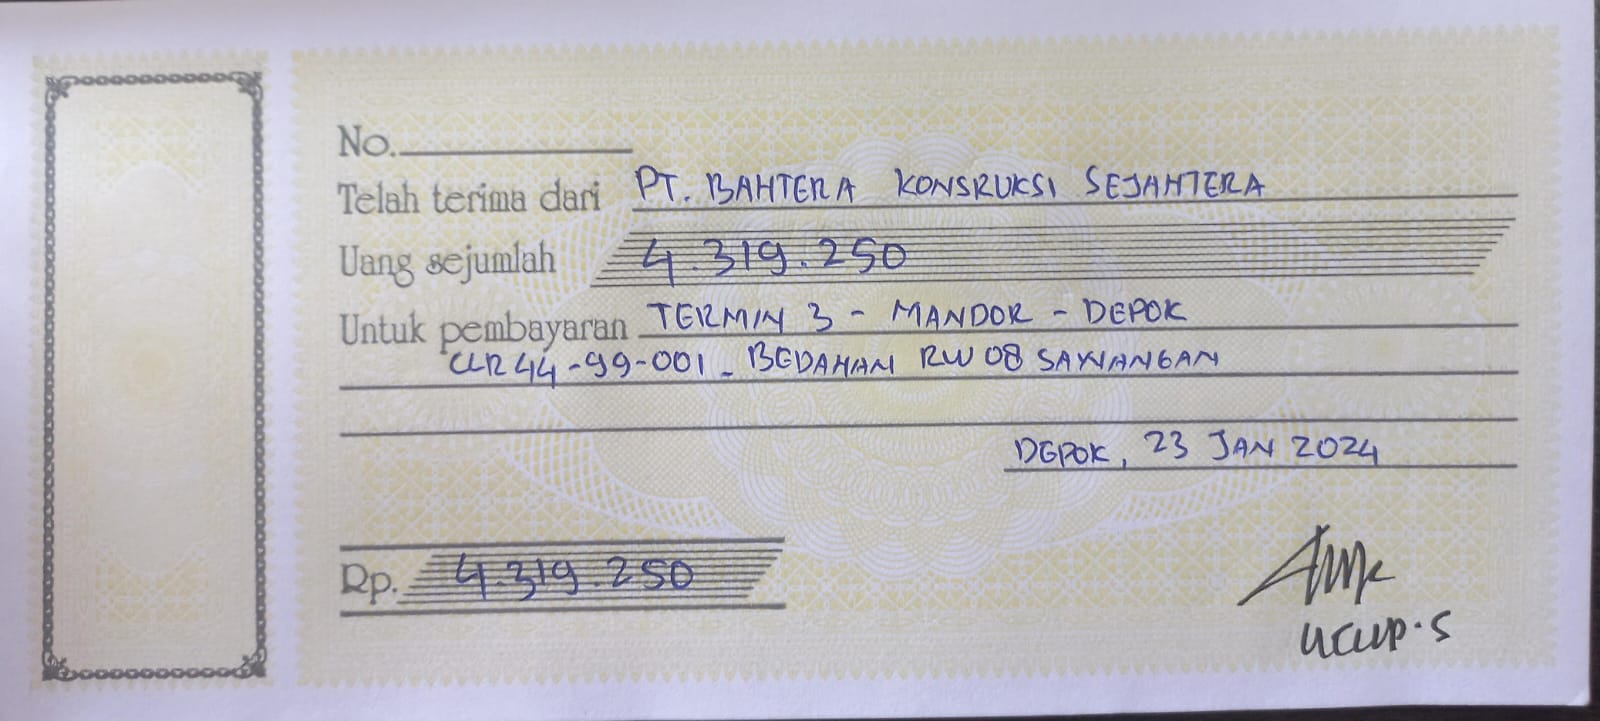 No.
Telah terima dari PT. BAHTERA KONSRUKSI SEJAHTERA
Uang sejumlah 4.319.250
Untuk pembayaran TERMIN 3 - MANDOR - DEPOK
CLR44-99-001_ BEDAHAN RW 08 SAWANGAN
DEPOK, 23 JAN 2024
Rp. 4.319.250
UCUP.S